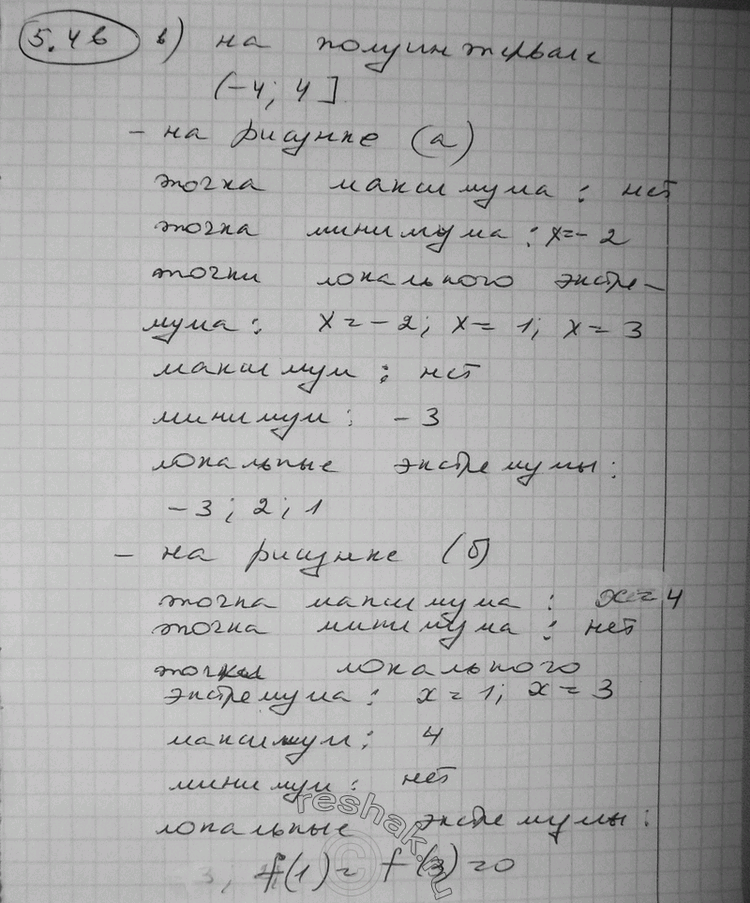 5.4в в) на полуинтервале
(-4; 4]
- на рисунке (а)
точка максимума : нет
точка минимума : x=-2
точки локального экстре-
мума: x=-2; x=1; x=3
максимум : нет
минимум : -3
локальные экстремумы:
-3; 2; 1
- на рисунке (б)
точка максимума : x=4
точка минимума : нет
точки локального
экстремума: x=1; x=3
максимум: 4
минимум: нет
локальные экстремумы:
f(1)= f(3)=0
reshak.ru